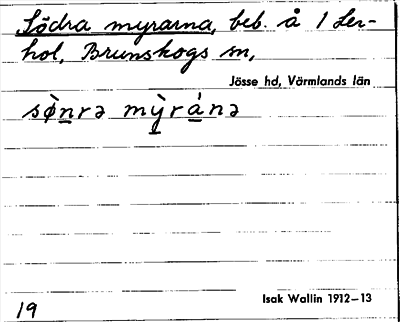 Södra myrarna, beb. å 1 Ler-
hol, Brunskogs sn,
Jösse hd, Värmlands län
sø̀nrə mỳránə
Isak Wallin 1912–13
19